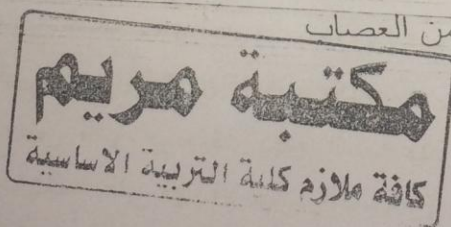 من العصاب
مكتبة مريم
كافة ملازم كلية التربية الاساسية